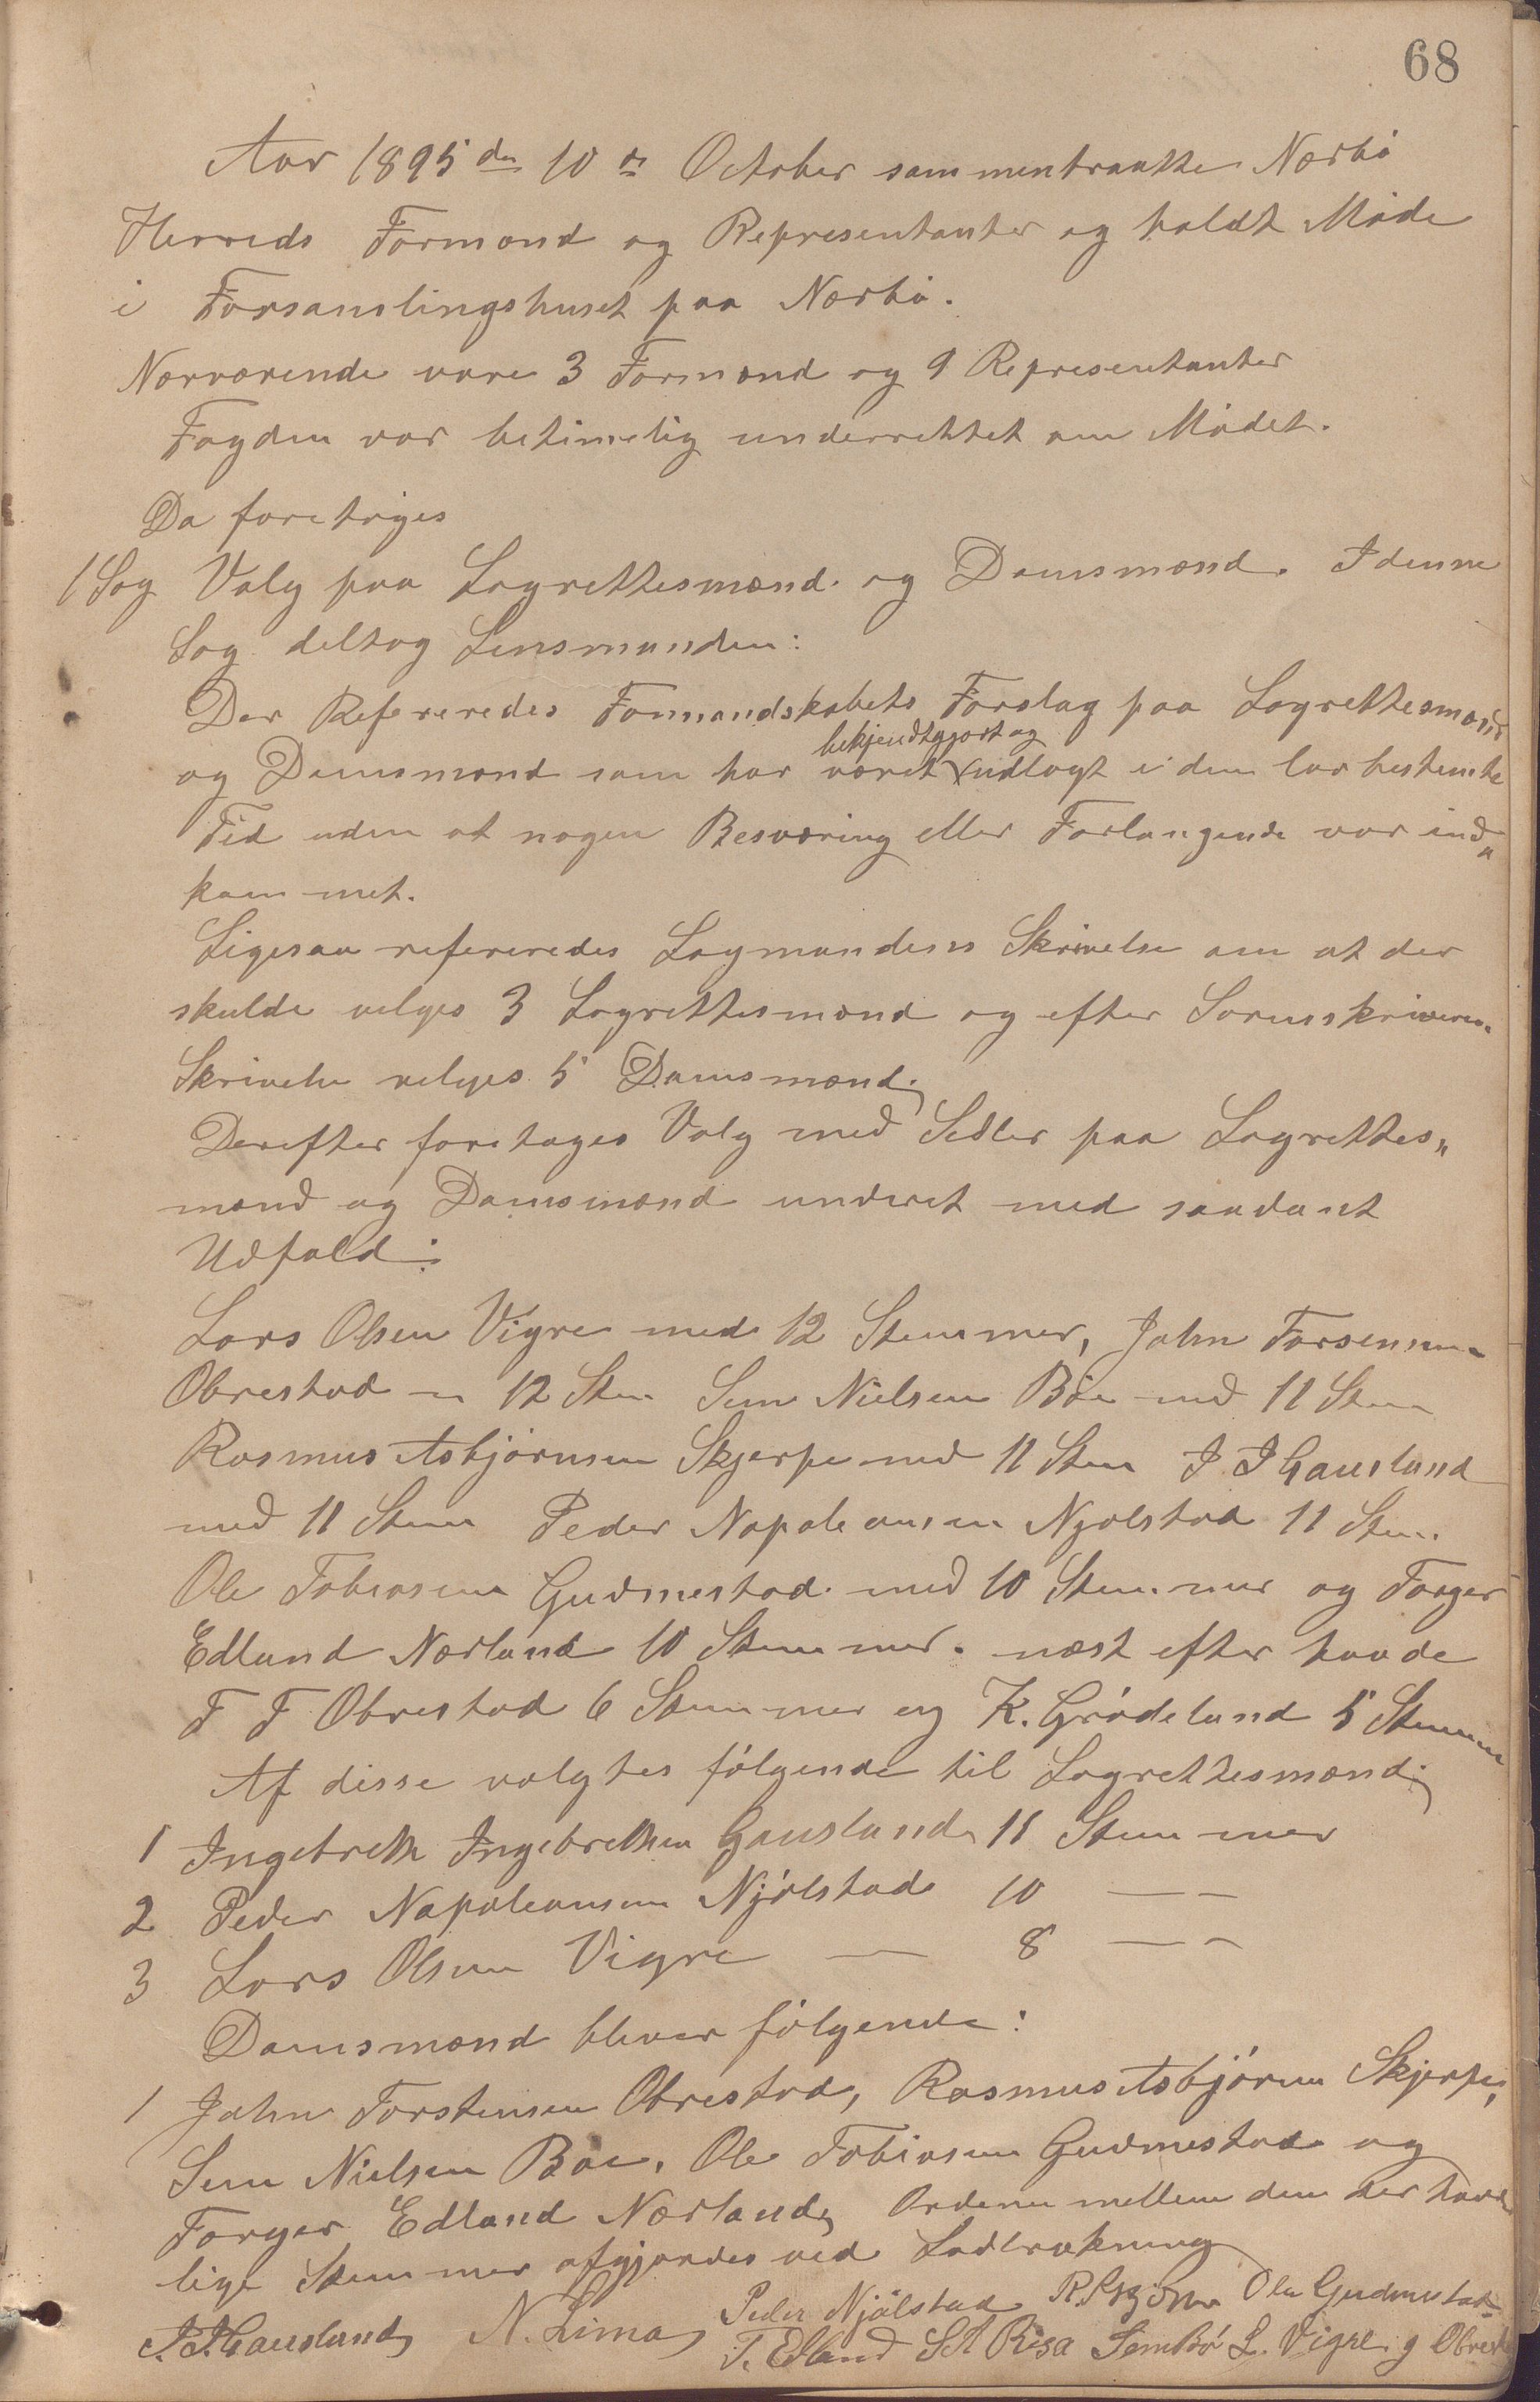 68
Aar 1895 den 10 de October sammentraatte Nærbø
Herreds Formænd og Representanter og holdt Møde
i Forsamlingshuset paa Nærbø.
Nærværende vare 3 Formænd og 9 Representanter
Fogden var betimelig underrettet om Mødet.
Da foretoges
1 Sag Valg paa Lagrettesmænd og Domsmænd. I denne
Sag deltog Lensmanden:
Der Refereredes Formandskabets Forslag paa Lagrettesmænd
bekjendtgjort og
og Domsmænd som har været udlagt i den lovbestemte
Tid uden at nogen Besværing eller Forlangende var ind„
kommet.
Ligesaa refereredes Lagmandens Skrivelse om at der
skulde velges 3 Lagrettesmænd og efter Sorenskriverens
Skrivelse velges 5 Domsmænd.
Derefter foretages Valg med Sedler paa Lagrettes„
mænd og Domsmænd underet med saadant
Udfald:
Lars Olsen Vigre med 12 Stemmer, John Torsensen
Obrestad - 12 Stem Sem Nielsen Bøe med 11 Stem
Rasmus Asbjørnsen Skjerpe med 11 Stem I I Gausland
med 11 Stem Peder Napoleonsen Njølstad 11 Stem.
Ole Tobiasen Gudmestad med 10 Stemmer og Torger
Edland Nærland 10 Stemmer. næst efter havde
T T Obrestad 6 Stemmer og K. Grødeland 5 Stemmer
Af disse valgtes følgende til Lagrettesmænd
1 Ingebreth Ingebrethsen Gausland 11 Stemmer
2 Peder Napoleonsen Njølstad 10 — —
3 Lars Olsen Vigre — 8 — —
Domsmænd bliver følgende:
1 John Torstensen Obrestad, Rasmus Asbjørnsen Skjerpe,
Sem Nielsen Bøe, Ole Tobiasen Gudmestad og
Torger Edland Nærland, Ordenen mellem dem der havde
lige Stemmer afgjordes ved Lodtrækning
Peder Njølstad Ole Gudmestad
I. I. Gausland N. Lima T. Edland Risa Sem Bø L. Vigre J Obrestad